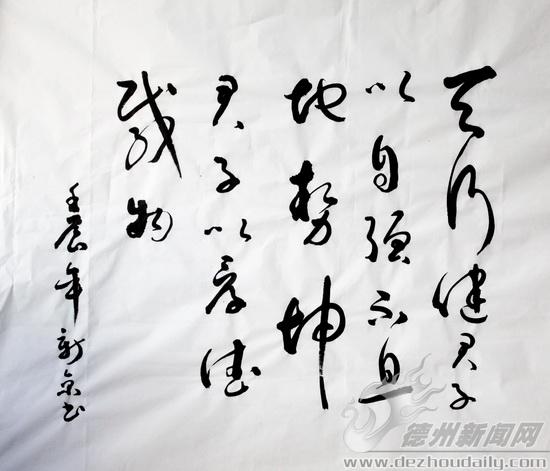 天行健君子
以自强不息
地势坤
君子以厚德
载物
壬辰年新泉书
德州新闻网
www.dezhoudaily.com